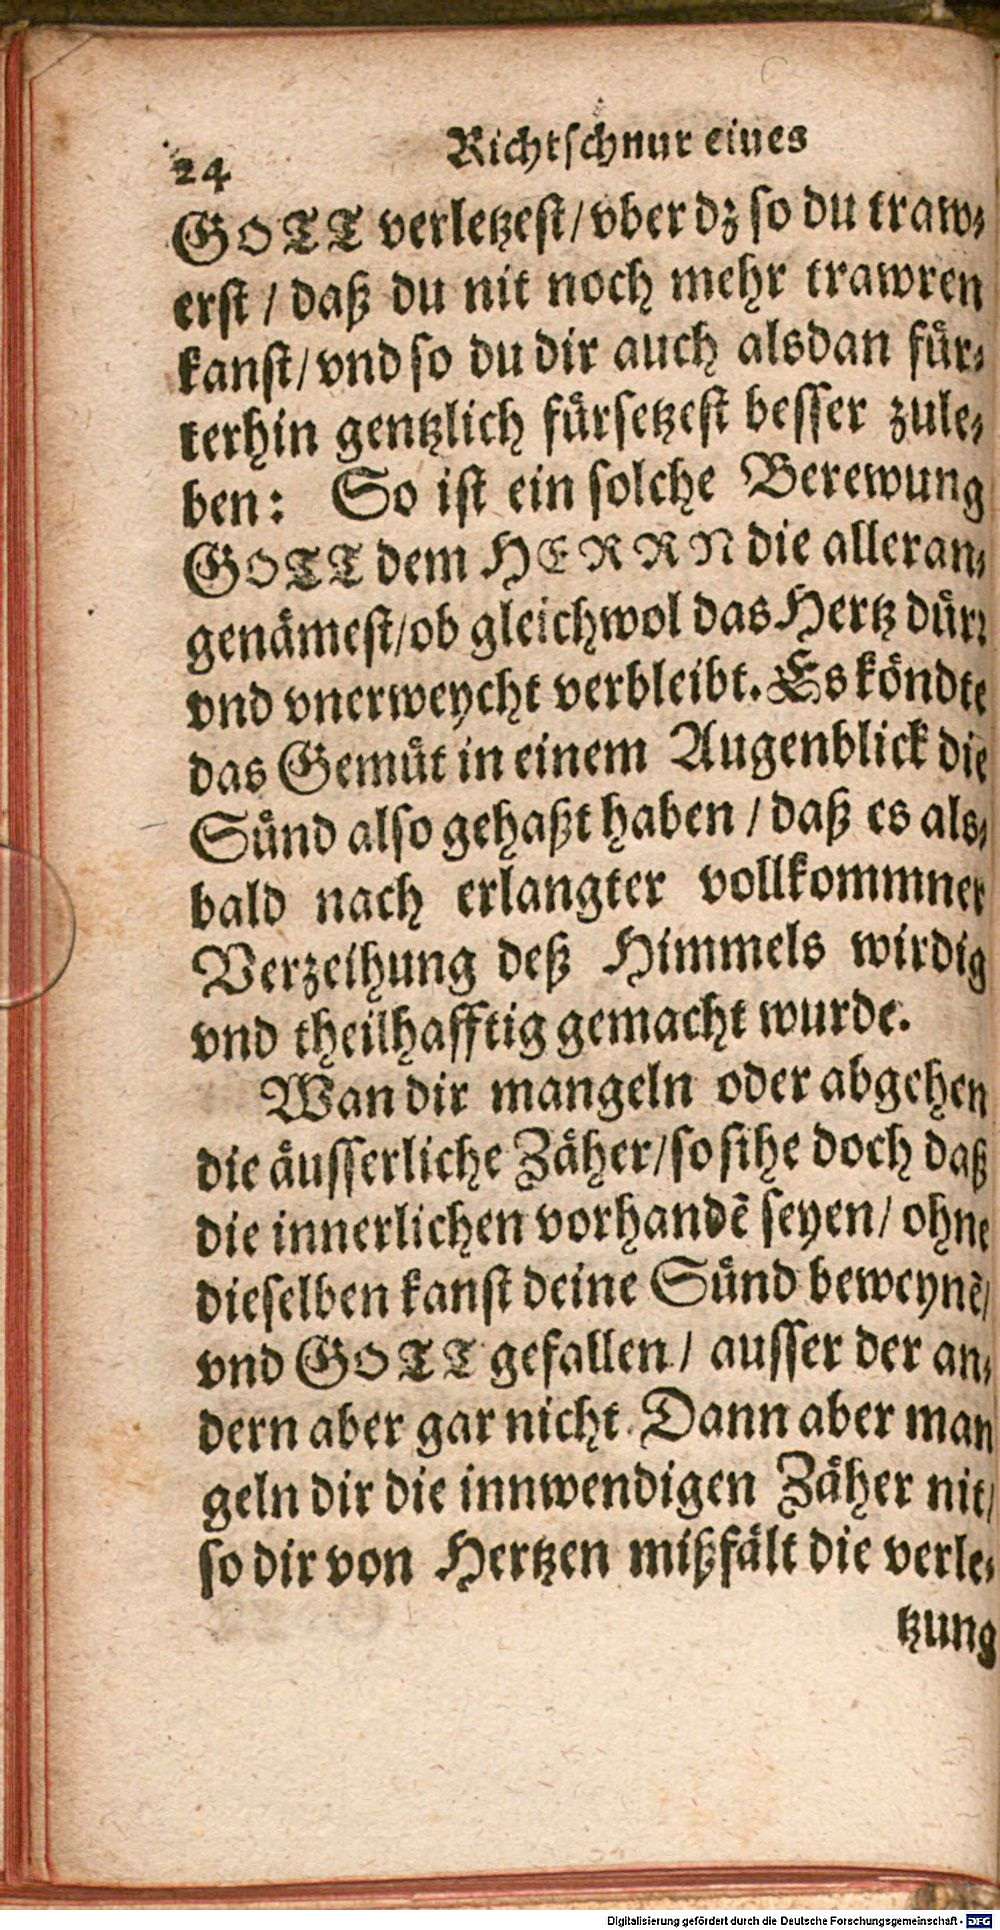 24 Richtschnur eines
GOTT verletzest / vber dz so du traw⸗
erst / daß du nit noch mehr trawren
kanst / vnd so du dir auch alsdan fuͤr⸗
terhin gentzlich fuͤrsetzest besser zule⸗
ben: So ist ein solche Berewung
GOTT dem HERRN die alleran⸗
genaͤmest / ob gleichwol das Hertz duͤrꝛ
vnd vnerweycht verbleibt. Es koͤndte
das Gemuͤt in einem Augenblick die
Suͤnd also gehaßt haben / daß es als⸗
bald nach erlangter vollkommner
Verzeihung deß Himmels wirdig
vnd theilhafftig gemacht wurde.
Wan dir mangeln oder abgehen
die aͤusserliche Zaͤher / so sihe doch daß
die innerlichen vorhandẽ seyen / ohne
dieselben kanst deine Suͤnd beweynẽ /
vnd GOTT gefallen / ausser der an⸗
dern aber gar nicht. Dann aber man
geln dir die innwendigen Zaͤher nit /
so dir von Hertzen mißfaͤlt die verle⸗
tzung
Digitalisierung gefördert durch die Deutsche Forschungsgemeinschaft - DFG